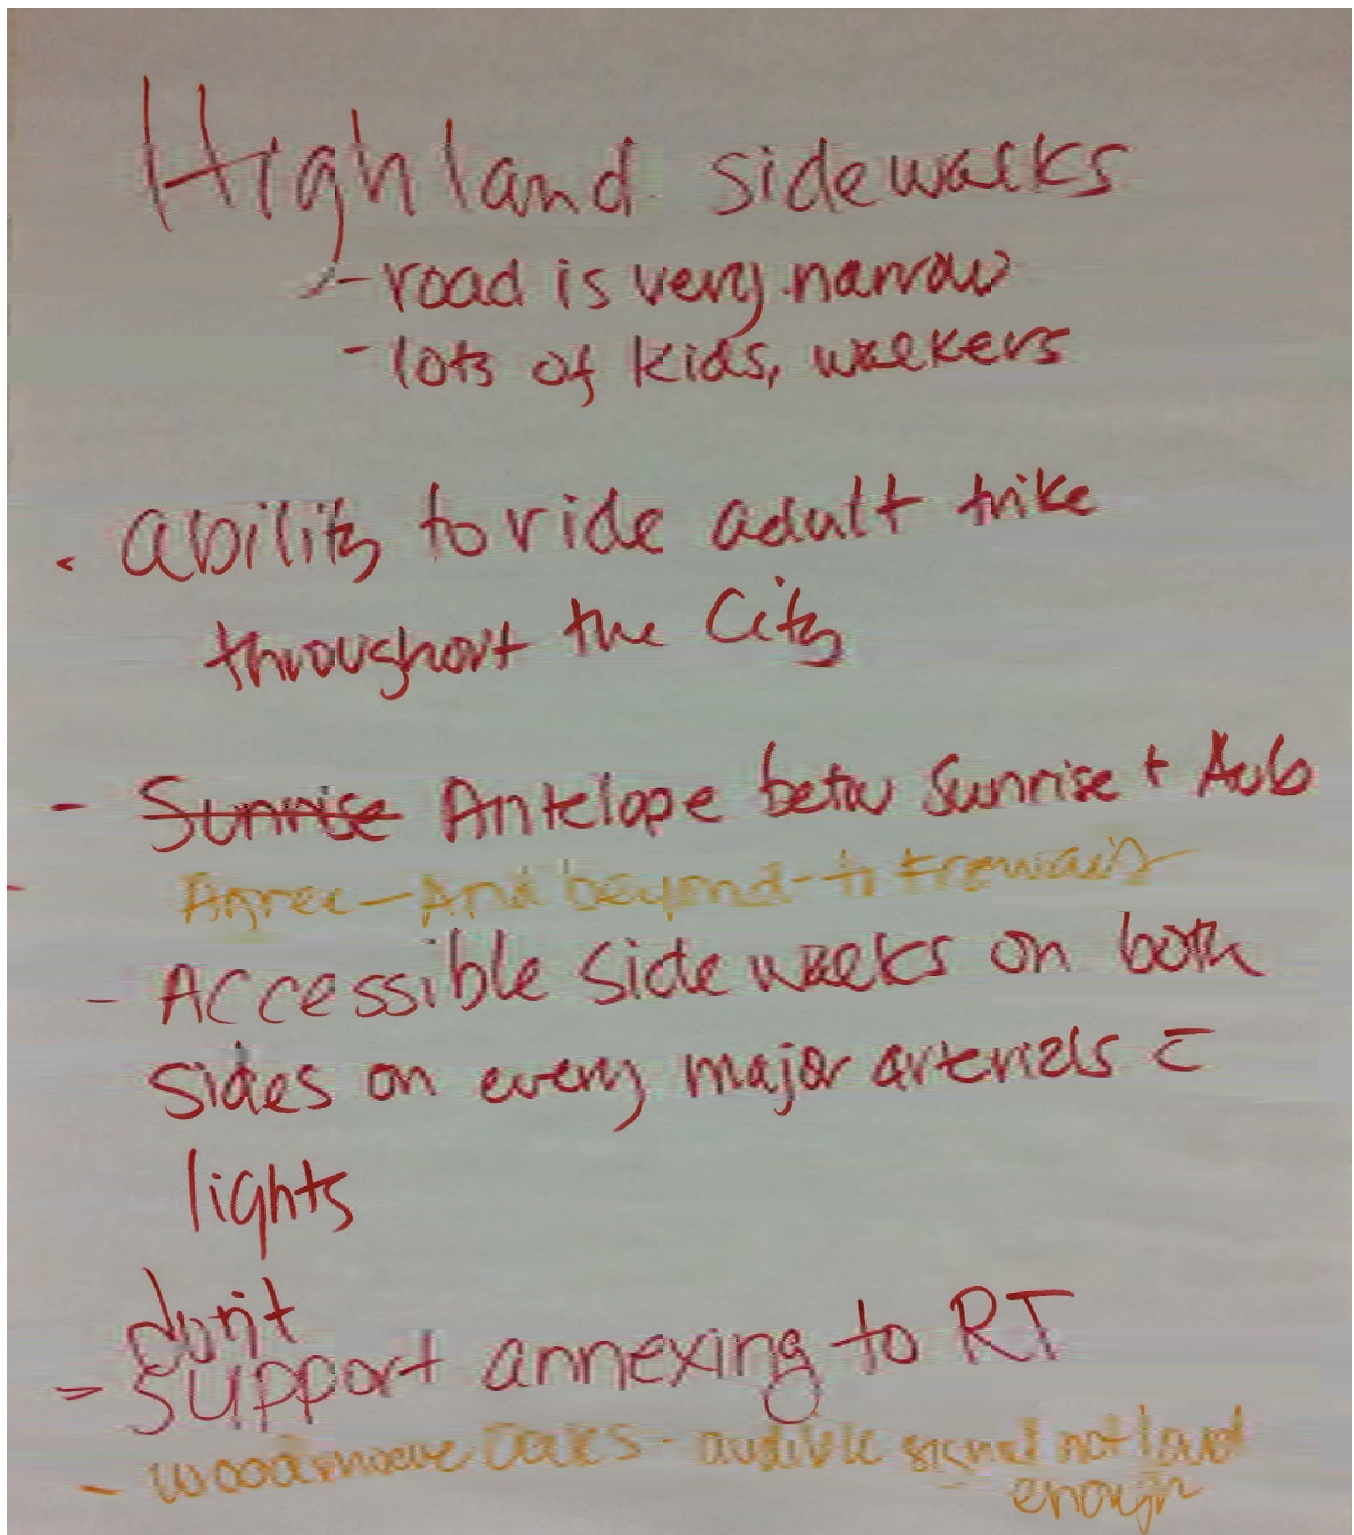 Highland sidewalks
- road is very narrow
- lots of kids, walkers
· ability to ride adult trike
throughout the City
- Sunrise Antelope betw Sunrise + Aub
Agree - And beyond - to
- Accessible sidewalks on both
sides on every major arterials c
lights
don't
- Support annexing to RT
- Woodmore Oaks - audible signal not loud
enough